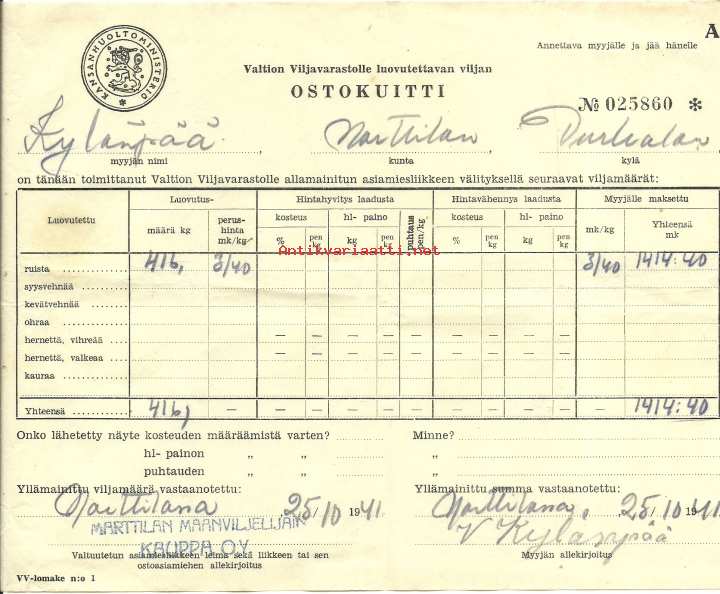 A
Annettava myyjälle ja jää hänelle
KANSANHUOLTOMINISTERIÖ
Valtion Viljavarastolle luovutettavan viljan
OSTOKUITTI
№ 025860 *
Kylänpää. Marttilan
myyjän nimi kunta kylä
on tänään toimittanut Valtion Viljavarastolle allamainitun asiamiesliikkeen välityksellä seuraavat viljamäärät:
Luovutettu Luovutus- Hintahyvitys laadusta Hintavähennys laadusta Myyjälle maksettu
määrä kg perushinta mk/kg kosteus hl- paino puhtaus pen/kg kosteus hl- paino mk/kg Yhteensä mk
% pen kg kg pen kg % pen kg kg pen kg
Antikvariaatti.net
ruista 416, 3/40 3/40 1414:40
syysvehnää
kevätvehnää
ohraa
hernettä, vihreää — — — — — — — — —
hernettä, valkeaa — — — — — — — — —
kauraa
Yhteensä 416, — — — — — — — — — — — 1414:40
Onko lähetetty näyte kosteuden määräämistä varten? Minne?
hl- painon „ „ „
puhtauden „ „ „
Yllämainittu viljamäärä vastaanotettu: Yllämainittu summa vastaanotettu:
Marttilassa 25/10 1941. Marttilassa, 25/10 1941
MARTTILAN MAANVILJELIJÄIN
KAUPPA O.Y. V Kylänpää
Valtuutetun asiamiesliikkeen leima sekä liikkeen tai sen
ostoasiamiehen allekirjoitus
Myyjän allekirjoitus
VV-lomake n:o 1